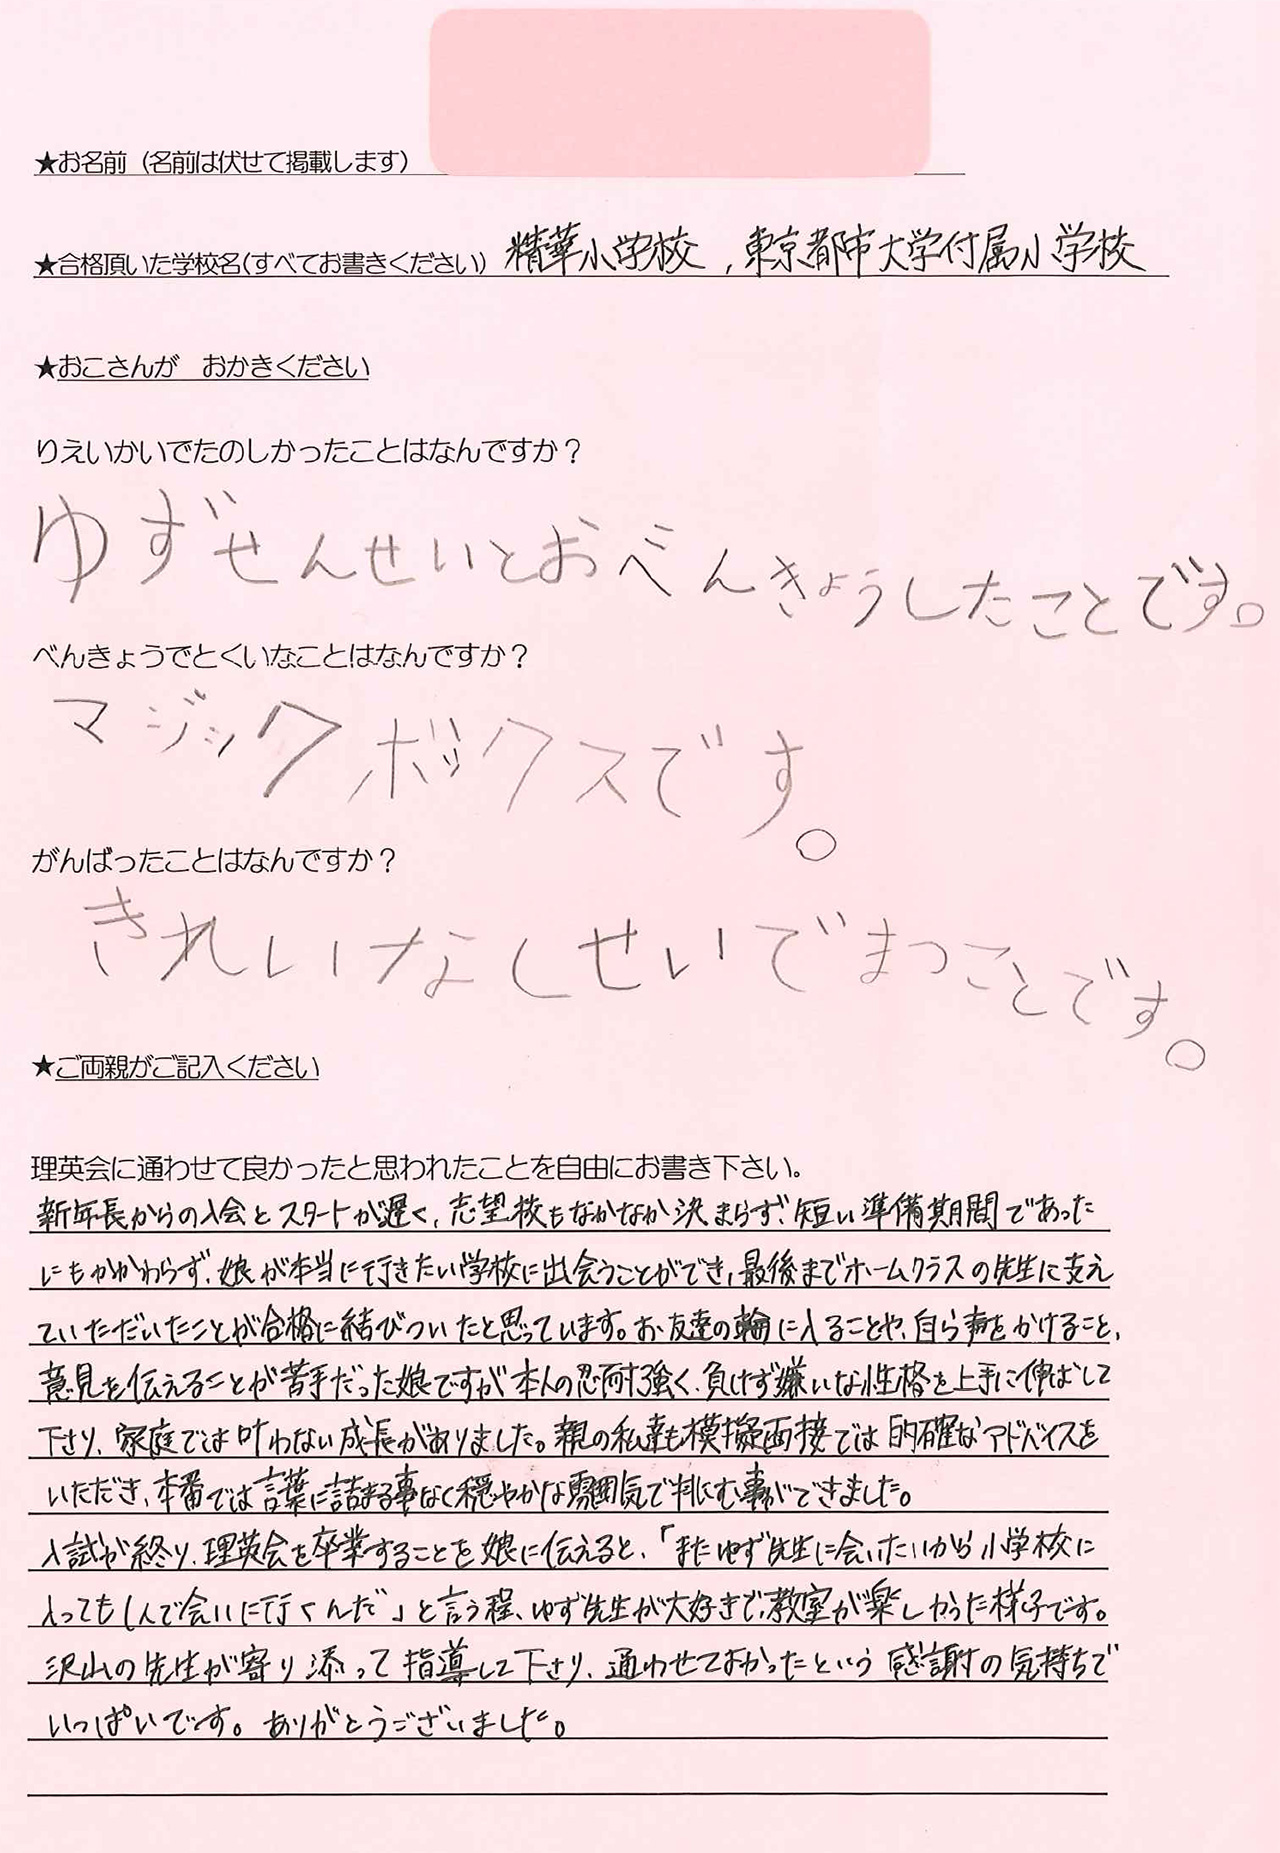 ★お名前（名前は伏せて掲載します）
★合格頂いた学校名(すべてお書きください) 精華小学校，東京都市大学付属小学校
★おこさんが　おかきください
りえいかいでたのしかったことはなんですか？
ゆずせんせいとおべんきょうしたことです。
べんきょうでとくいなことはなんですか？
マジックボックスです。
がんばったことはなんですか？
きれいなしせいでまつことです。
★ご両親がご記入ください
理英会に通わせて良かったと思われたことを自由にお書き下さい。
新年長からの入会とスタートが遅く、志望校もなかなか決まらず、短い準備期間であった
にもかかわらず、娘が本当に行きたい学校に出会うことができ、最後までホームクラスの先生に支え
ていただいたことが合格に結びついたと思っています。お友達の輪に入ることや、自ら声をかけること、
意見を伝えることが苦手だった娘ですが本人の忍耐強く、負けず嫌いな性格を上手に伸ばして
下さり、家庭では叶わない成長がありました。親の私達も模擬面接では的確なアドバイスを
いただき、本番では言葉に詰まる事なく穏やかな雰囲気で臨む事ができました。
入試が終り、理英会を卒業することを娘に伝えると、「またゆず先生に会いたいから小学校に
入っても1人で会いに行くんだ」と言う程、ゆず先生が大好きで、教室が楽しかった様子です。
沢山の先生が寄り添って指導して下さり、通わせてよかったという感謝の気持ちで
いっぱいです。ありがとうございました。